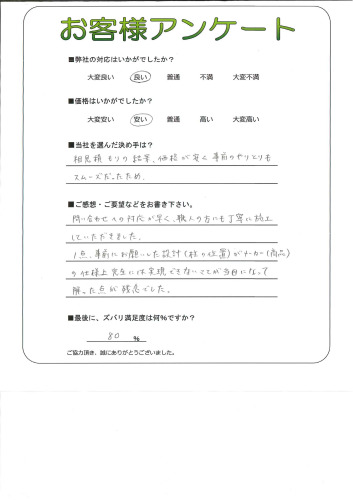 お客様アンケート
■弊社の対応はいかがでしたか?
大変良い 良い 普通 不満 大変不満
■価格はいかがでしたか?
大変安い 安い 普通 高い 大変高い
■当社を選んだ決め手は?
相見積もりの結果、価格が安く事前のやりとりも
スムーズだったため。
■ご感想・ご要望などをお書き下さい。
問い合わせへの対応が早く、職人の方にも丁寧に施工
していただきました。
1点、事前にお願いした設計(柱の位置)がメーカー(商品)
の仕様上完全には実現できないことが当日になって
解った点が残念でした。
■最後に、ズバリ満足度は何%ですか?
80 %
ご協力頂き、誠にありがとうございました。